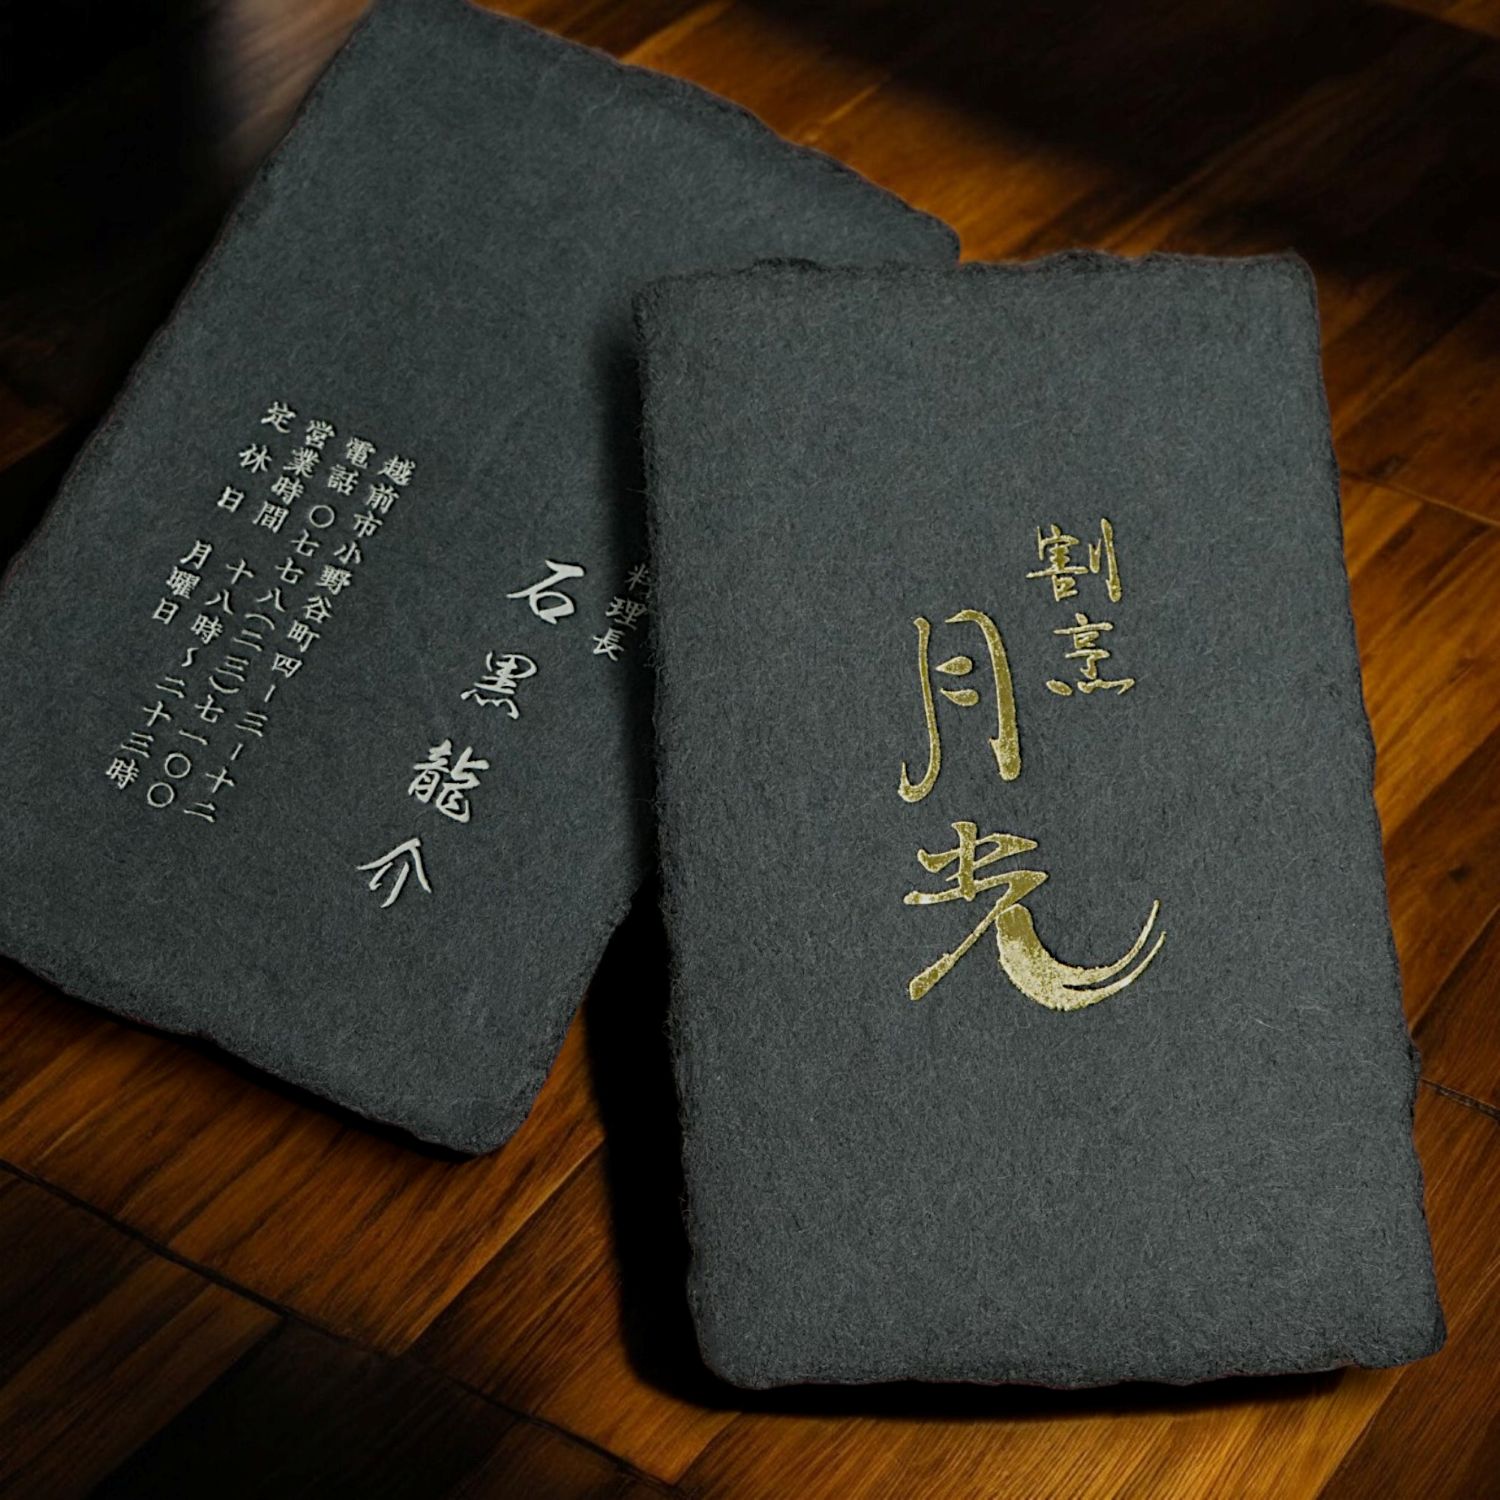 料理長
石黒龍介
越前市小野谷町四ー三ー十二
電話〇七七八(二三)七一〇〇
営業時間 十八時〜二十三時
定休日 月曜日
割烹
月光